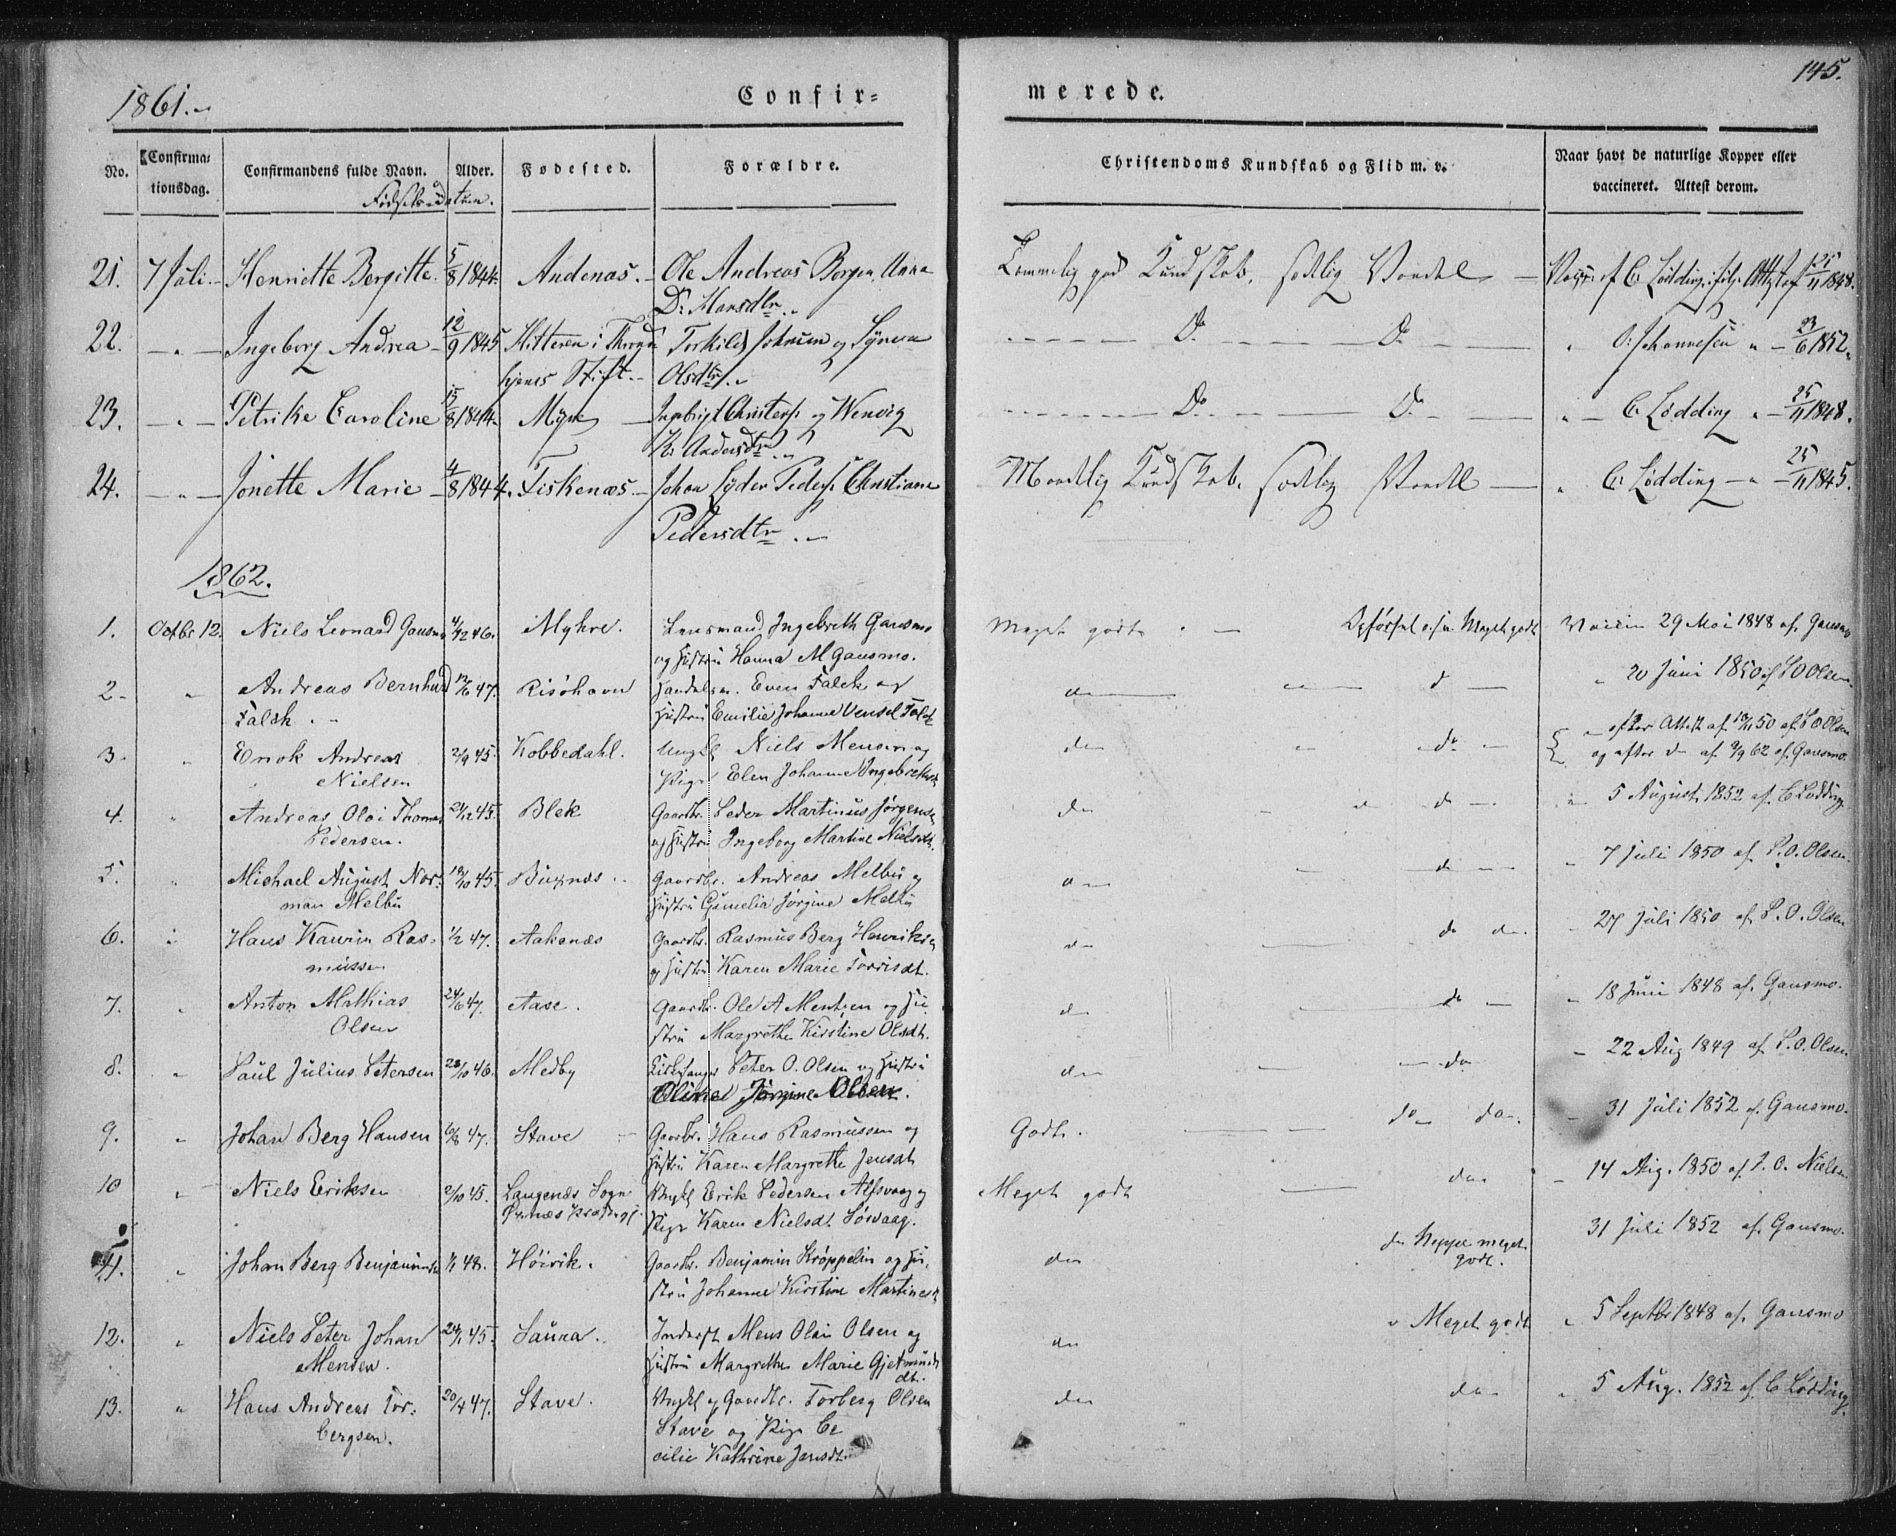 145.
1861.
Confir=
merede.
No.
Confirma=
tionsdag.
Confirmandens fulde Navn.
Alder.
Fødselsdatum.
Fødested.
Forældre.
Christendoms Kundskab og Flid m. v.
Naar havt de naturlige Kopper eller
vaccineret. Attest derom.
21. 7 Juli. Henriette Bergitte. 5/8 1844. Andenæs. Ole Andreas Borgen, Anna
D. Hansdtr.
Temmelig god Kundskab, sædelig Vandel
C. Lødding 25/11 1848.
22. " Ingeborg Andrea 12/9 1845 Hitteren i Thrond
hjems Stift. Torkild Johnsen og Synøva
Olsdtr.
Do Do
" O. Johannesen " 23/6 1852.
23. " Petrike Caroline 15/8 1844. Myre Ingebrigt Christens. og Wenvig
K. Andersdtr.
Do Do
" C. Lødding " 25/11 1848.
24. " Jonette Marie 4/8 1844. Fiskenæs. Johan Lyder Peders. Christiane
Pedersdtr.
Maadelig Kundskab. sædelig Vandel
" C. Lødding " 25/11 1845.
1862.
1. Octbr 12. Niels Leonard Gausmo 4/12 46. Myhre. Lensmand Ingebreth Gausmo
og Hustru Hanna M Gausmo.
Meget godt. Opførsel Meget godt
Vaccin 29 Mai 1848 af Gausmo
2. " Andreas Bernhard
Falck. 12/6 47. Risøhavn Handelsm. Even Falck og
Hustru Emilie Johanne Vensel Falck
do " d
" 20 Juni 1850 af P O Olsen
3. " Enok Andreas
Nielsen 2/9 45. Kobbedahl. Ungkl Niels Mensen og
Pige Elen Johanne Ingebrektsd
do " do
" efter Attest af 50 af P O Olsen
og efter do af 9/9 62 af Gausmo.
4. " Andreas Olai Thomas
Pedersen. 21/12 45. Blek Gaardbr. Peder Martinus Jørgensen
og Hustru Ingeborg Martine Nielsdt.
do d
" 5 August 1852 af C Lødding
5. " Michael August Nor=
man Melbu 18/10 45. Bugnæs Gaardbr. Andreas Melbu og
Hustru Gumelia Jørgine Melbu
do do
" 7 Juli 1850 af P. O. Olsen.
6. " Hans Kaurin Ras=
mussen 1/2 47. Aakenæs Gaardbr. Rasmus Berg Henriksen
og Hustru Karen Marie Torrisdt.
do do do.
27 Juli 1850 af P. O. Olsen
7. " Anton Mathias
Olsen 24/6 47. Aase. Gaardbr. Ole A Mentzen og Hu=
stru Margrethe Kirstine Olsdt.
d do
" 18 Juni 1848 af Gausmo.
8. " Paul Julius Petersen 28/10 46. Medby Kirkesanger Peter O. Olsen og Hustru
Oline Jørgine Olsen.
do do
22 Aug 1849 af P. O. Olsen
9. " Johan Berg Hansen 6/6 47. Stave Gaardbr. Hans Rasmussen og
Hustru Karen Margrethe Jensdt
Godt. do do.
31 Juli 1852 af Gausmo.
10 " Niels Eriksen 2/10 45. Langenæs Sogn
Øxnæs Præstegj. Ungkl Erik Pedersen Alfsvaag og
Pige Karen Nielsdt. Sørvaag.
Meget godt do
14 Aug. 1850 af P. O. Nielsen
11. " Johan Berg Benjaminsen 1/1 48. Høivik. Gaardbr. Benjamin Krøppelin og Hu=
stru Johanne Kirstine Martinesd
do do Neppe meget
godt.
31 Juli 1852 af Gausmo.
12. " Niels Peter Johan
Mensen. 24/1 45. Saura. Inderst Mens Olai Olsen og
Hustru Margrethe Marie Gjetmunds
dt.
do Meget godt
" 5 Septbr 1848 af Gausmo
13. " Hans Andreas Tor=
bergsen. 20/4 47. Stave. Ungkl og Gaardbr. Torberg Olsen
Stave og Pige Ce
cilie Kathrine Jensdt
do do
" 5 Aug. 1852 af C Lødding.